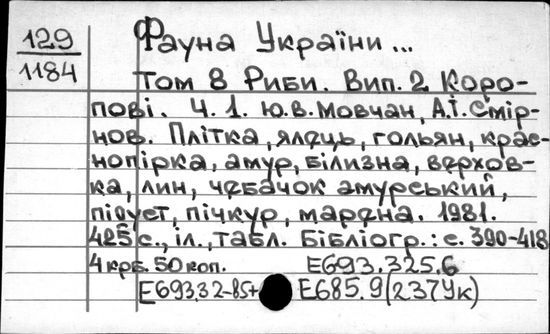 129
1184
Фауна України ...
Том 8 Риби. Вип. 2 Коро-
пові. Ч. 1. Ю.В. Мовчан, А.І. Смір-
нов. Плітка, ялець, гольян, крас-
нопірка, амур, білизна, верхов-
ка, лин, чебачок амурський,
підуст, пічкур, марена. 1981.
425 с., іл., табл. Бібліогр.: с. 390-418
4 крб. 50 коп. Е693.325.6
Е693.32-85+ Е685.9(2Зук)